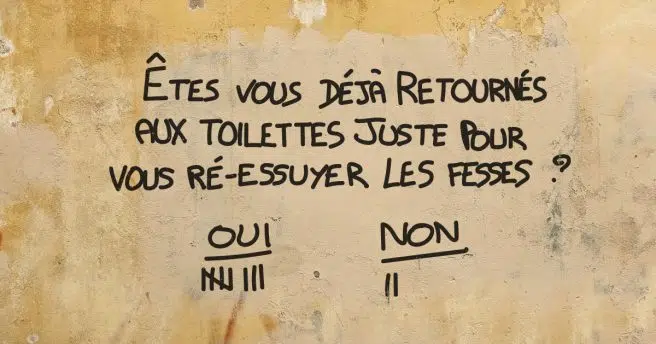 ÊTES VOUS DÉJÀ RETOURNÉS
AUX TOILETTES JUSTE POUR
VOUS RÉ-ESSUYER LES FESSES ?
OUI NON